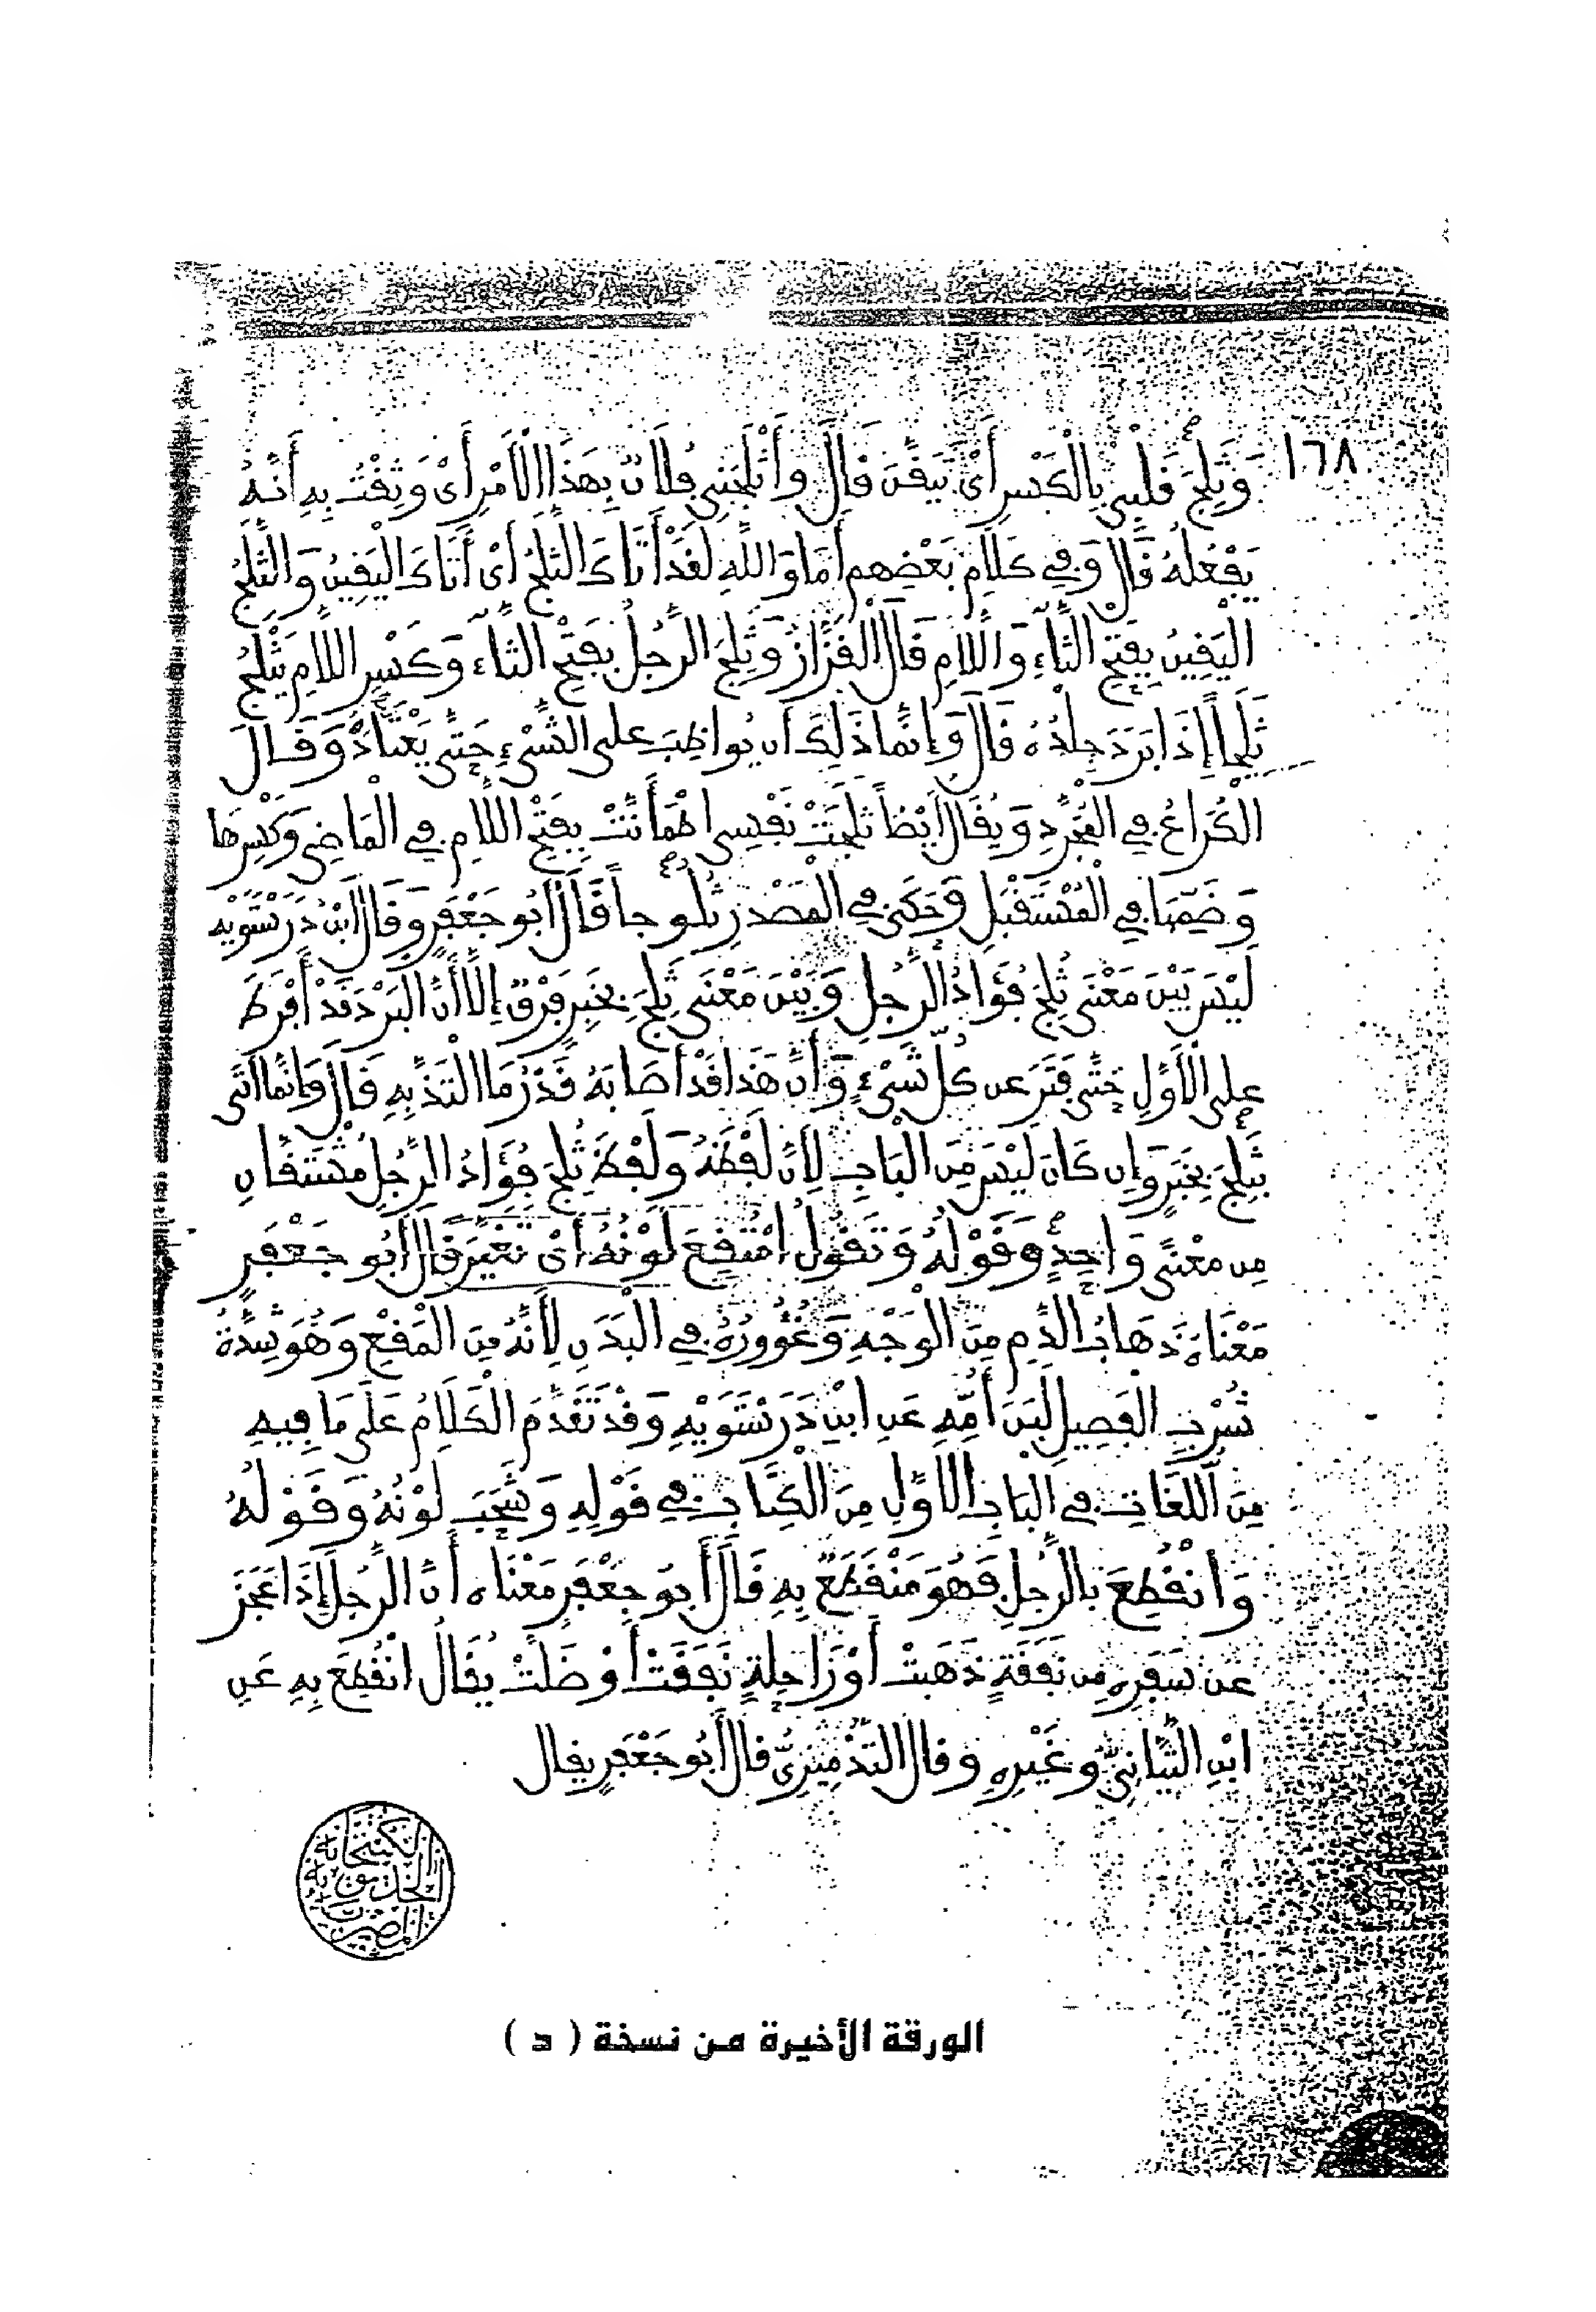 ١٦٨
وَثَلِجَ قَلْبِي بِالْكَسْرِ أَيْ تَيَقَّنَ قَالَ وَأَثْلَجَنِي فُلَانٌ بِهَذَا الْأَمْرِ أَيْ وَثِقْتُ بِهِ أَنَّهُ
يَفْعَلُهُ قَالَ وَفِي كَلَامِ بَعْضِهِم أَمَا وَاللَّهِ لَقَدْ أَتَاكَ الثَّلَجُ أَيْ أَتَاكَ الْيَقِينُ وَالثَّلَجُ
الْيَقِينُ بِفَتْحِ الثَّاءِ وَاللَّامِ قَالَ الْقَزَّازُ وَثَلِجَ الرَّجُلُ بِفَتْحِ الثَّاءِ وَكَسْرِ اللَّامِ يَثْلَجُ
ثَلَجاً إِذَا بَرَدَ جِلْدُهُ قَالَ وَإِنَّمَا ذَلِكَ أَن يُوَاظِبَ عَلَى الشَّيْءِ حَتَّى يَعْتَادَهُ وَقَالَ
الْكُرَاعُ فِي الْمُجَرَّدِ وَيُقَالُ أَيْضاً ثَلَجَتْ نَفْسِي اطْمَأَنَّتْ بِفَتْحِ اللَّامِ فِي الْمَاضِي وَكَسْرِهَا
وَضَمِّهَا فِي الْمُسْتَقْبَلِ وَحَكَى فِي الْمَصْدَرِ ثُلُوجاً قَالَ أَبُو جَعْفَرٍ وَقَالَ ابْنُ دَرَسْتَوَيْهِ
لَيْسَ بَيْنَ مَعْنَى ثُلِجَ فُؤَادُ الرَّجُلِ وَبَيْنَ مَعْنَى ثَلِجَ بِخَبَرٍ فَرْقٌ إِلَّا أَنَّ الْبَرْدَ قَدْ أَفْرَطَ
عَلَى الْأَوَّلِ حَتَّى فَتَرَ عَن كُلِّ شَيْءٍ وَأَنَّ هَذَا قَدْ أَصَابَهُ قَدْرُ مَا الْتَذَّ بِهِ قَالَ وَإِنَّمَا أَتَى
بِثَلِجَ بِخَبَرٍ وَإِن كَانَ لَيْسَ مِنَ الْبَابِ لِأَنَّ لَفْظَهُ وَلَفْظَ ثُلِجَ فُؤَادُ الرَّجُلِ مُشْتَقَّانِ
مِن مَعْنًى وَاحِدٍ وَقَوْلُهُ وَتَقُولُ امْتُقِعَ لَوْنُهُ أَيْ تَغَيَّرَ قَالَ أَبُو جَعْفَرٍ
مَعْنَاهُ ذَهَابُ الدَّمِ مِنَ الْوَجْهِ وَغُؤُورُهُ فِي الْبَدَنِ لِأَنَّهُ مِنَ الْمَقْعِ وَهُوَ شِدَّةُ
شُرْبِ الْفَصِيلِ لَبَنَ أُمِّهِ عَنِ ابْنِ دَرَسْتَوَيْهِ وَقَدْ تَقَدَّمَ الْكَلَامُ عَلَى مَا فِيهِ
مِنَ اللُّغَاتِ فِي الْبَابِ الْأَوَّلِ مِنَ الْكِتَابِ فِي قَوْلِهِ وَشَحَبَ لَوْنُهُ وَقَوْلُهُ
وَانْقُطِعَ بِالرَّجُلِ فَهُوَ مُنْقَطَعٌ بِهِ قَالَ أَبُو جَعْفَرٍ مَعْنَاهُ أَنَّ الرَّجُلَ إِذَا عَجَزَ
عَن سَفَرِهِ مِن نَفَقَةٍ ذَهَبَتْ أَوْ رَاحِلَةٍ نَفَقَتْ أَوْ ضَلَّتْ يُقَالُ انْقُطِعَ بِهِ عَنِ
ابْنِ التَّيَّانِيِّ وَغَيْرِهِ وَقَالَ التُّدْمِيرِيُّ قَالَ أَبُو جَعْفَرٍ يقال
الكتبخانة
الخديوية
المصرية
الورقة الأخيرة من نسخة ( د )